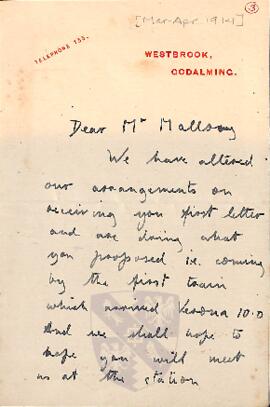 3
[Mar-Apr 1914]
TELEPHONE 133.
WESTBROOK,
GODALMING.
Dear Mr Mallory
We have altered
our arrangements on
receiving you first letter
and are doing what
you proposed i.e. coming
by the first train
which arrives Verona 10.0
And we shall hope to
hope you will meet
us at the station